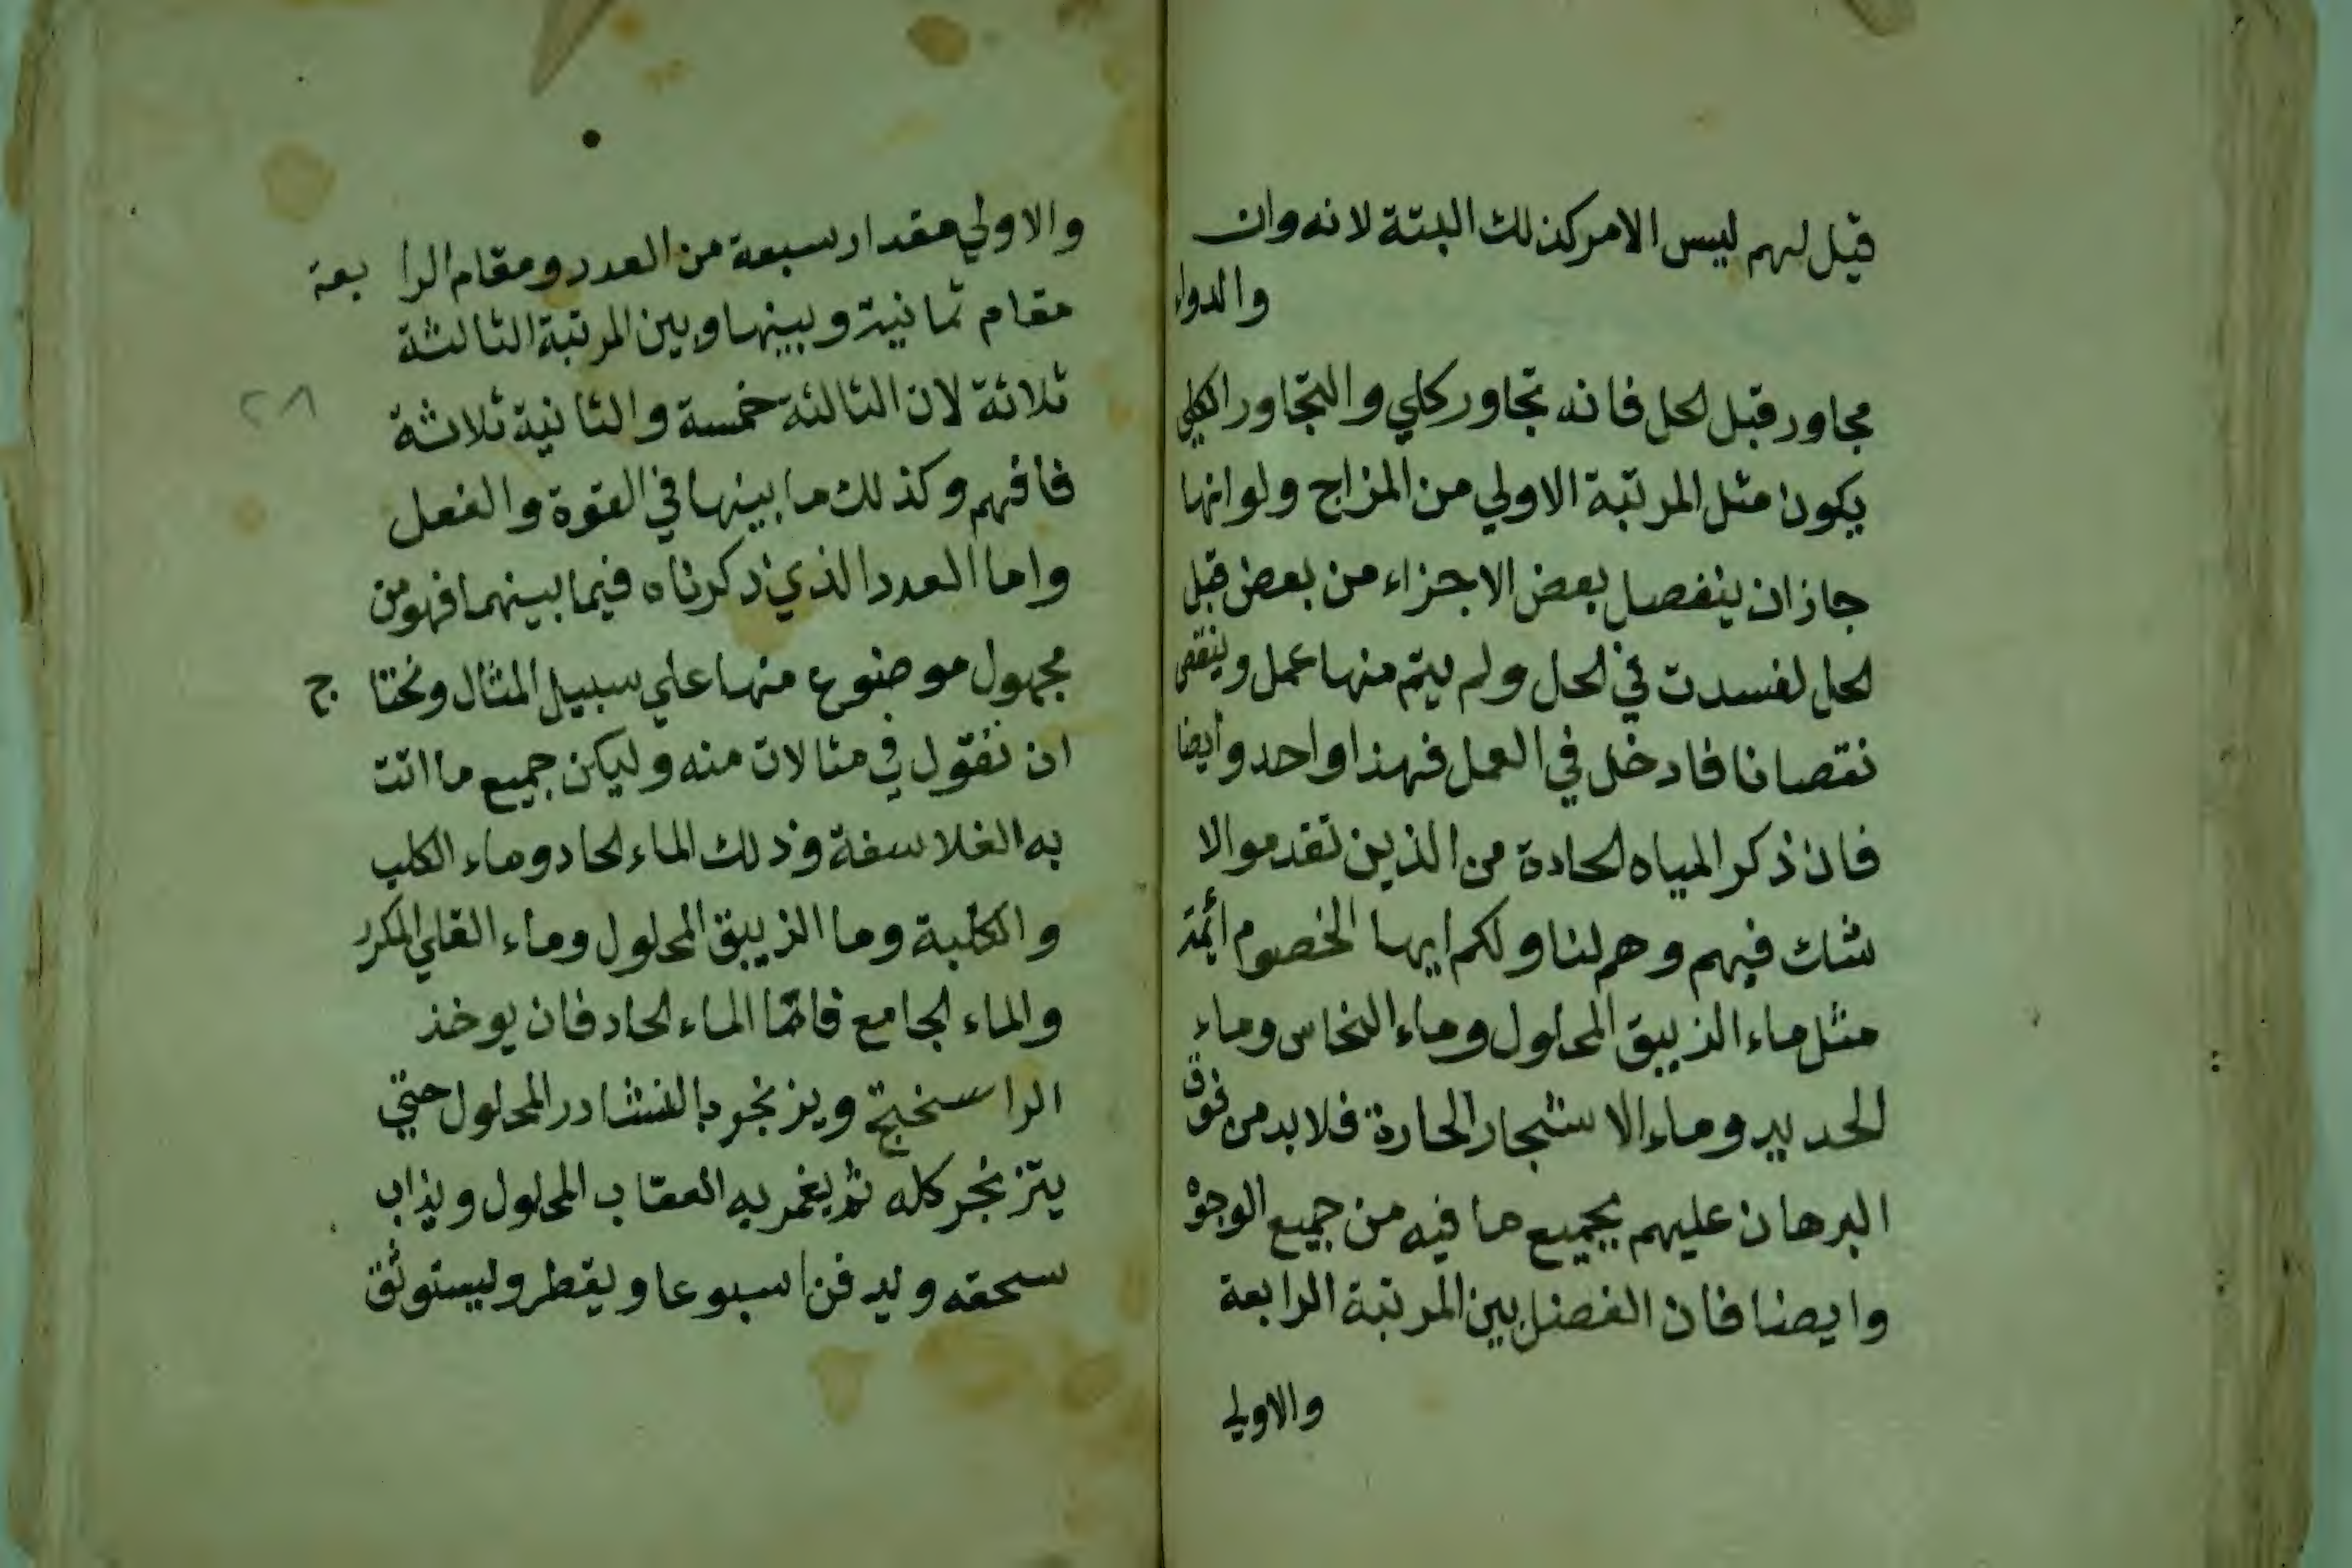 قيل لهم ليس الامر كذلك البتة لانه وان
والدواء
مجاور قبل الحل فانه تجاور كلي والتجاور الكلي
يكون مثل المرتبة الاولي من المزاج ولو انها
جاز ان ينفصل بعض الاجزاء من بعض قبل
الحل لفسدت في الحل ولم يتم منها عمل وينقص
نقصانا فادخل في العمل فهذا واحد وايضا
فان ذكر المياه الحادة من الذين تقدموا لا
شك فيهم وهم لنا ولكم ايها الخصوم ائمة
مثل ماء الزيبق المحلول وماء النحاس وماء
الحديد وماء الاشجار الحارة فلا بد من فوق
البرهان عليهم بجميع ما فيه من جميع الوجوه
وايضا فان الفضل بين المرتبة الرابعة
والاولي
والاولي مقدار سبعة من العدد ومقام الرا بعة
مقام ثمانية وبينها وبين المرتبة الثالثة
ثلاثة لان الثالثة خمسة والثانية ثلاثة
٢٨
فافهم وكذلك ما بينها في القوة والفعل
واما العدد الذي ذكرناه فيما بينهما فهو من
مجهول موضوع منها علي سبيل المثال ونحتا ج
ان نقول في مثالات منه وليكن جميع ما اتت
به الفلاسفة وذلك الماء الحاد وماء الكلب
والكلبة وما الزيبق المحلول وماء القلي المكرر
والماء الجامع فاما الماء الحاد فان يوخذ
الراسختج ويزنجر بالنشادر المحلول حتي
يتزنجر كله ثم يغمر به العقاب المحلول ويذاب
سحقه ويدفن اسبوعا ويقطر وليستوثق